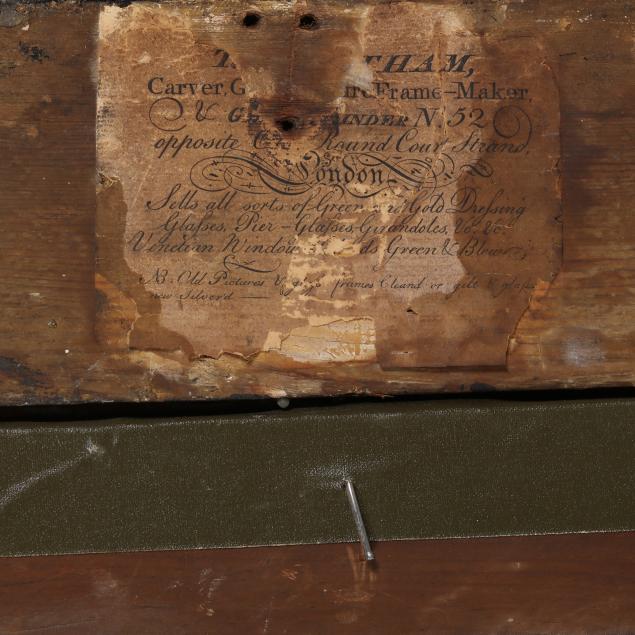 T. THAM,
Carver, G Frame-Maker,
& G INDER N. 52
opposite Round Court Strand,
London
Sells all sorts of Green & Gold Dreſsing
Glaſses, Pier-Glaſses Girandoles, &c. &c.
Venetian Window ds Green &
NB. Old Pictures & frames Cleand or gilt & glaſses
new Silver'd